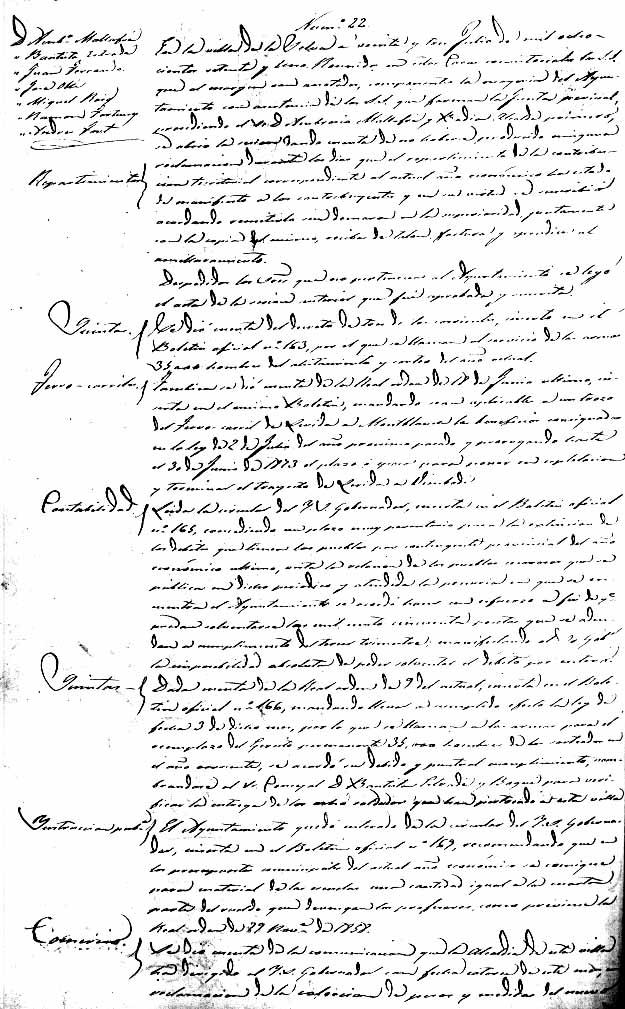 Num.º 22
D. Amb.º Mallafré
" Bautista Estrada
" Juan Ferrando
" José Olle
" Miguel Roig
" Ramon Fortuny
" Isidro Fort
En la villa de la Selva a veinte y tres Julio de mil ocho-
cientos setenta y dos. Reunidos en estas Casas consistoriales los S.S.
que al margen van anotados, componiendo la mayoria del Ayun-
tamiento con asistencia de los S.S. que forman la Junta pericial,
presidiendo el Sr. D. Ambrosio Mallafré y Alcalde primero,
se abrio la sesion dando cuenta de no haberse producido ninguna
Repartimiento
reclamacion durante los dias que el repartimiento de la contribu-
cion territorial correspondiente al actual año económico ha estado
de manifiesto a los contribuyentes y en su vista se
acordando remitirlo sin demora a la superioridad juntamente
con la copia del mismo, recibos de talon, factura y apendice al
amillaramiento.
Despedidos los Sres que no pertenecen al Ayuntamiento se leyó
el acta de la sesion anterior que fué aprobada y
Quintas.
Se dió cuenta del decreto de tres de los corrientes, inserto en el
Boletin oficial nº 163, por el que se llaman al servicio de las armas
35,000 hombres del alistamiento y sorteo del año actual.
Ferro-carriles
Tambien se dió cuenta de la Real orden de 18 de Junio ultimo, in-
serta en el mismo Boletin, mandando sean aplicables a un trozo
del Ferro-carril de Lerida a Montblanch los beneficios consignados
en la ley de 2 de Julio del año proximo pasado y prorogando hasta
el 30 de Junio de 1873 el plazo para poner en esplotacion
y terminar el trayecto de Lerida a Vimbodi.
Contabilidad
Leida la circular del Y. S. Gobernador, inserta en el Boletin oficial
nº 165, concediendo un plazo muy perentorio para la estincion de
los debitos que tienen los pueblos por contingente provincial del año
económico ultimo, vista la relacion de los pueblos morosos que se
publica en dicho periodico y atendida la penuria en que se en-
cuentra el Ayuntamiento se acordó hacer un esfuerzo a fin de que
puedan solventarse las mil ciento cincuenta pesetas que se adeu-
dan a cumplimiento del tercer trimestre; manifestando al S. Gob.r
la imposibilidad absoluta de poder solventar el débito por entero.
Quintas
Dada cuenta de la Real orden de 9 del actual, inserta en el Bole-
tin oficial nº 166, mandando llevar a cumplido efecto la ley de
fecha 3 de dicho mes, por la que se llaman a las armas para el
reemplazo del Ejercito permanente 35,000 hombres de los sorteados en
el año corriente, se acordó su debido y puntual cumplimiento, nom-
brandose al Sr. Concejal D. Bautista Estrada y Bagué para veri-
ficar la entrega de los ocho soldados que han prestado a esta villa
Instruccion publ.ª
El Ayuntamiento quedó enterado de la circular del Y. S. Goberna-
dor, inserta en el Boletin oficial nº 169, recomendando que en
los presupuestos municipales del actual año económico se consigne
para material de las escuelas una cantidad igual a la cuarta
parte del sueldo que devengan los profesores, como previene la
Real orden de 29 Nov.e de 1858.
Comunicac.
Se dió cuenta de la comunicacion que la Alcaldia de esta villa
ha dirigido al Y. S. Gobernador con fecha catorce de este mes, en
reclamacion de la coleccion de pesos y medidas del nuevo